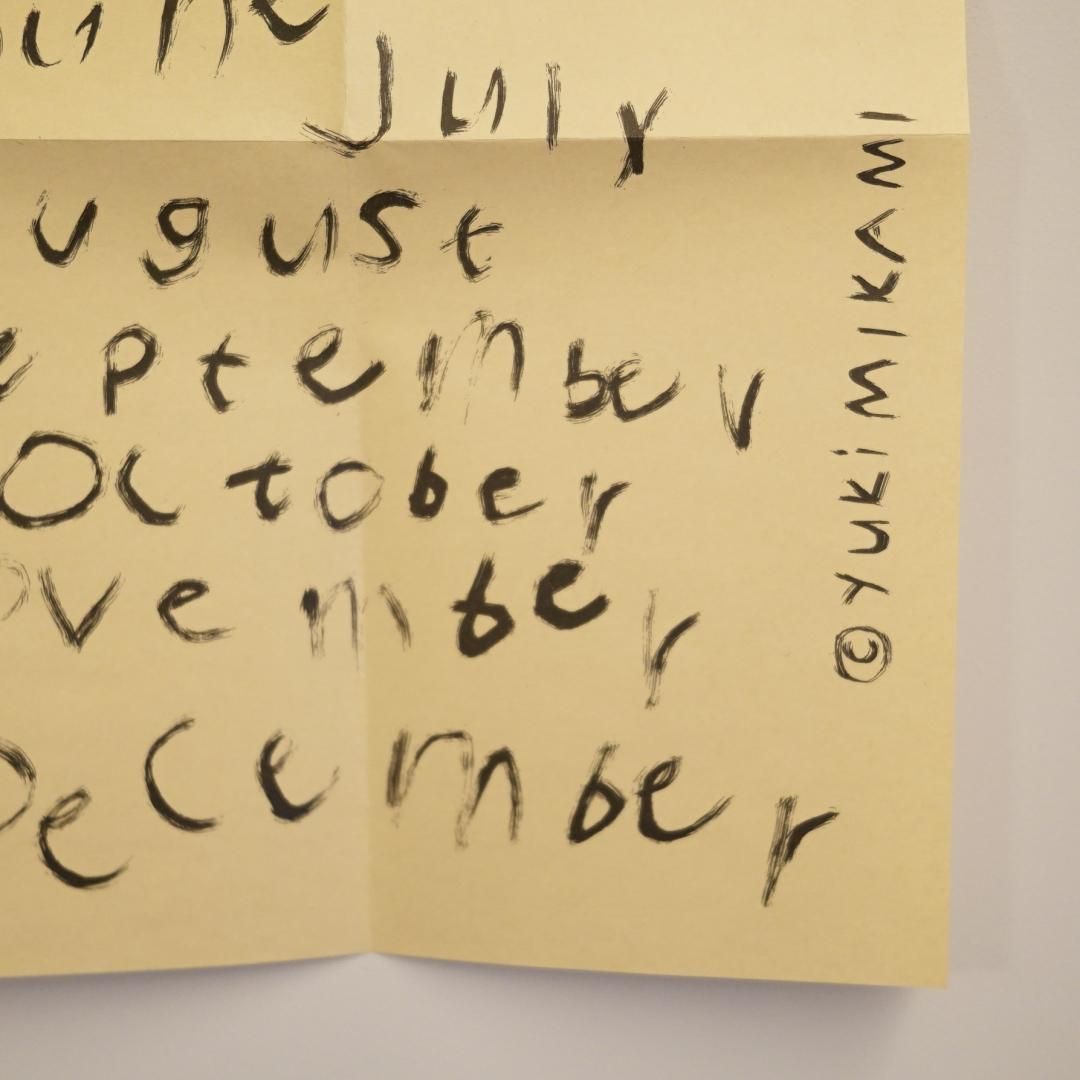 une
July
ugust
eptember
October
ovember
December
© YUKi MIKAMI